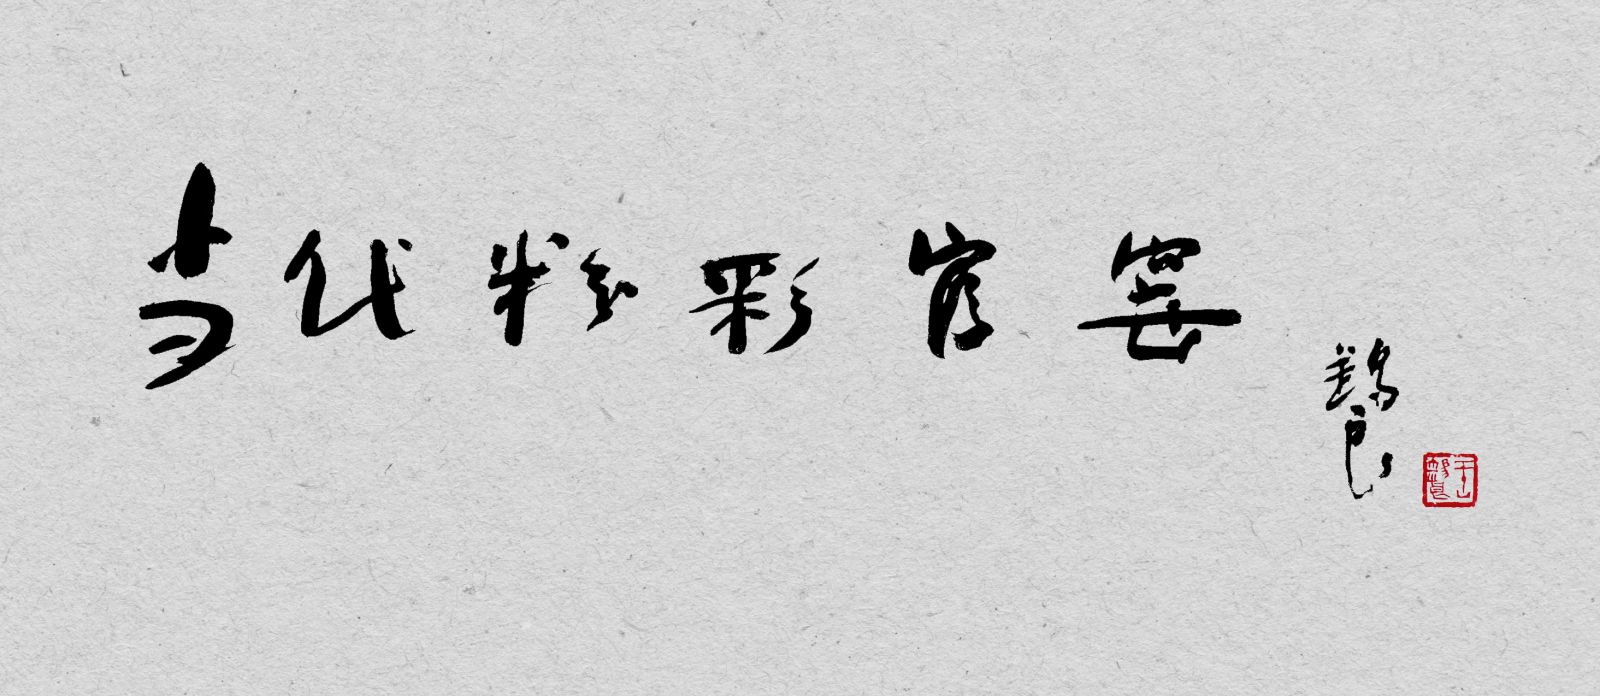 当代粉彩官窑
锡良